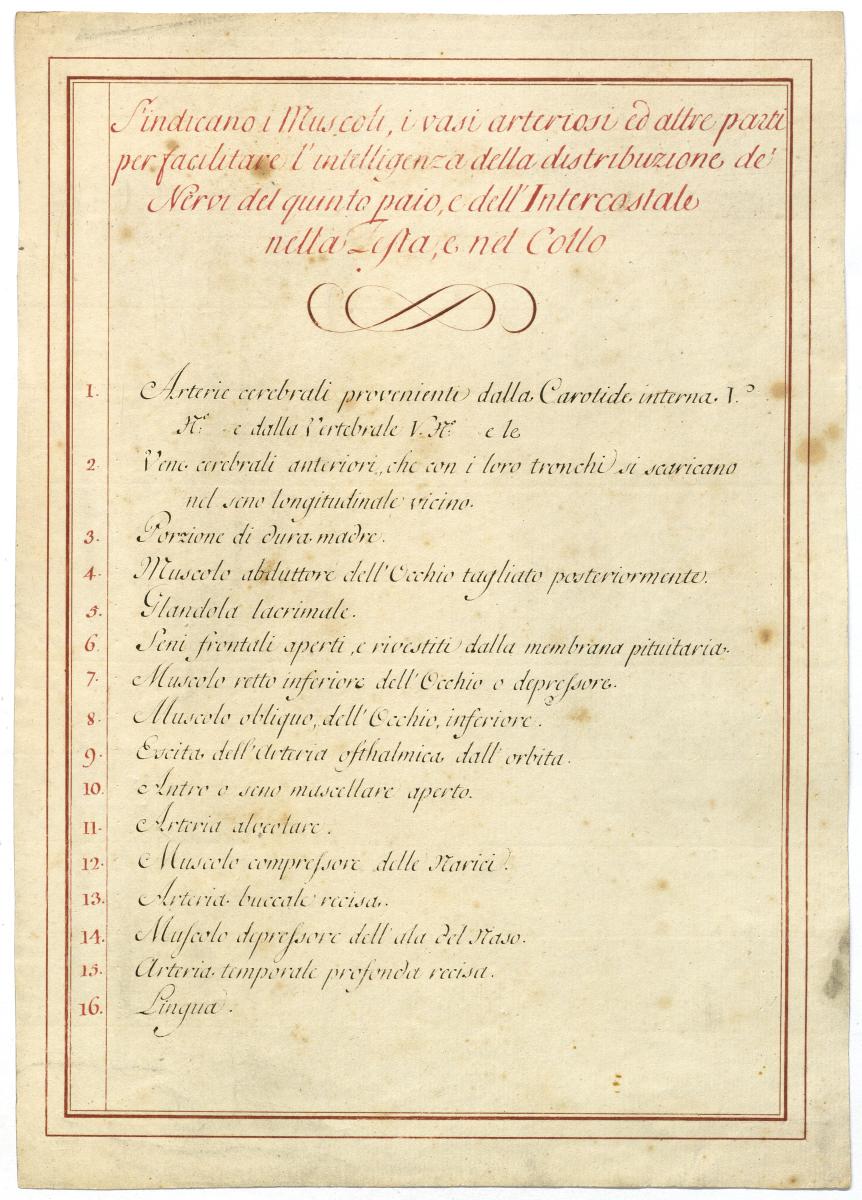 S'indicano i Muscoli, i vasi arteriosi ed altre parti
per facilitare l'intelligenza della distribuzione de'
Nervi del quinto paio, e dell'Intercostale
nella Testa, e nel Collo
1. Arterie cerebrali provenienti dalla Carotide interna V.º
N.º e dalla Vertebrale V. N.º e le
2. Vene cerebrali anteriori, che con i loro tronchi si scaricano
nel seno longitudinale vicino.
3. Porzione di dura madre.
4. Muscolo abduttore dell'Occhio tagliato posteriormente.
5. Glandola lacrimale.
6. Seni frontali aperti, e rivestiti dalla membrana pituitaria.
7. Muscolo retto inferiore dell'Occhio o depreſsore.
8. Muscolo obliquo, dell'Occhio, inferiore.
9. Escita dell'Arteria ofthalmica dall'orbita.
10. Antro o seno mascellare aperto.
11. Arteria alveolare.
12. Muscolo compreſsore delle Narici.
13. Arteria buccale recisa.
14. Muſcolo depreſsore dell'ala del Naso.
15. Arteria temporale profonda recisa.
16. Lingua.